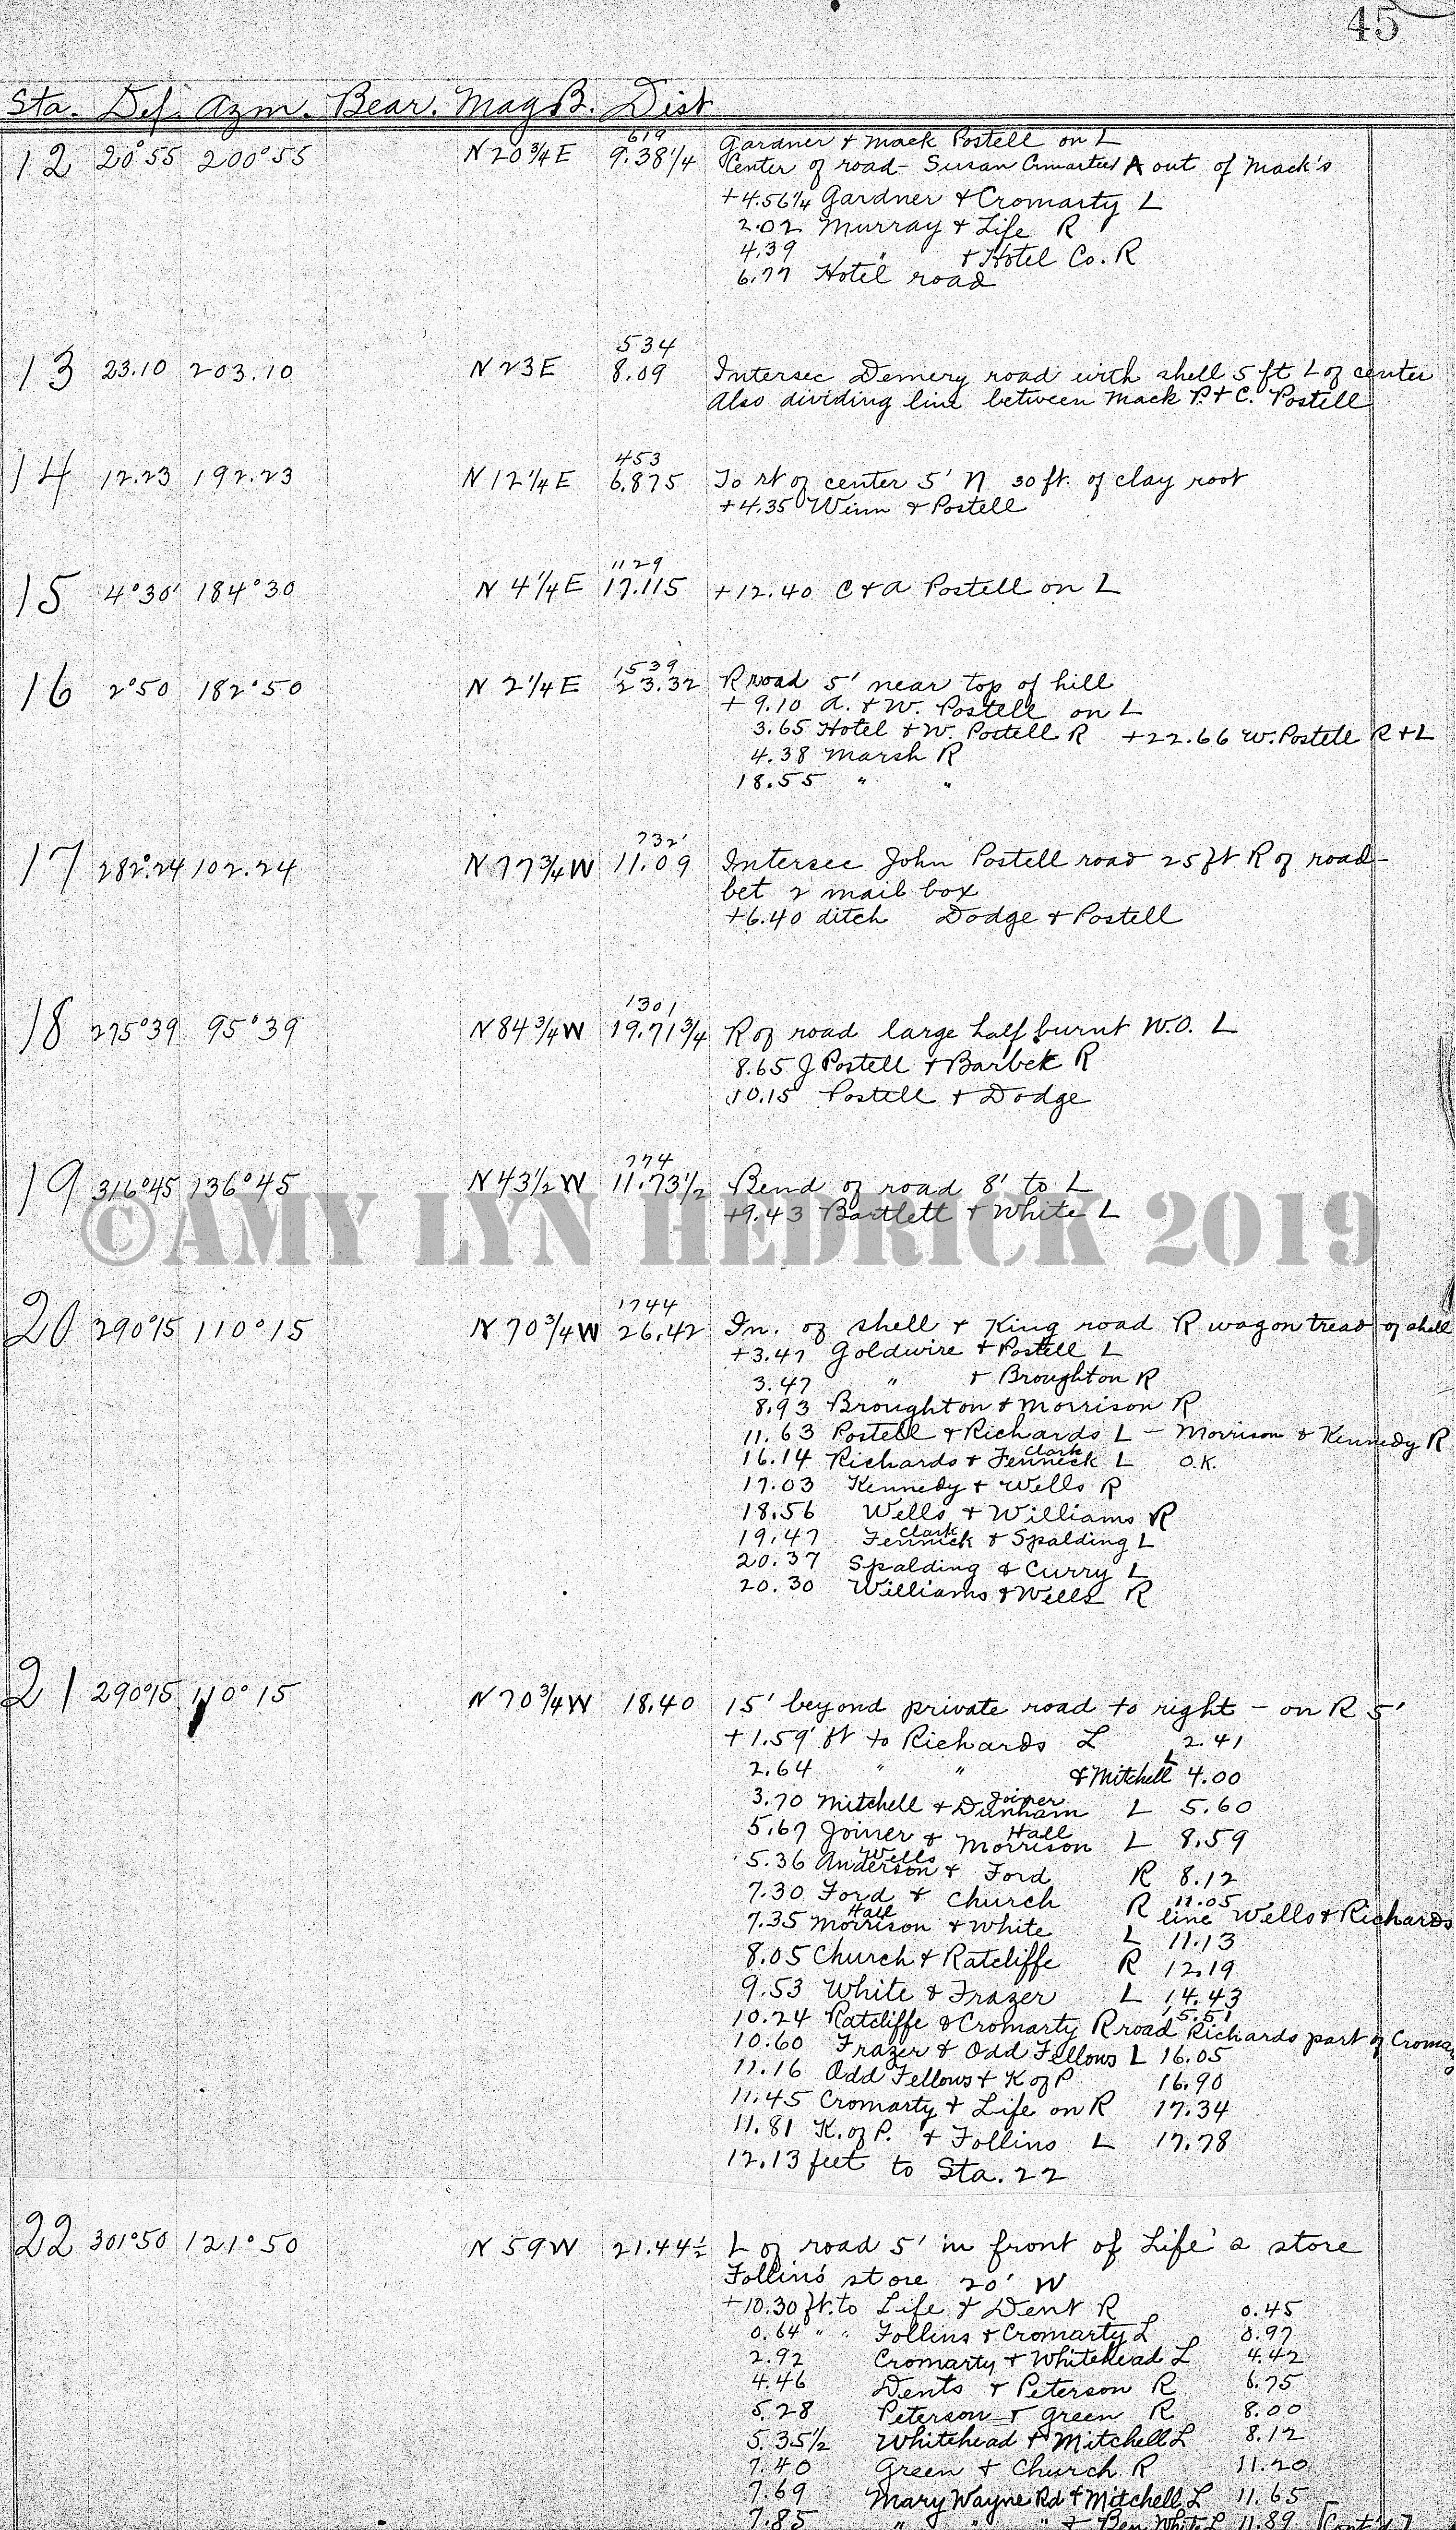 45
Sta. Def. Azm. Bear. Mag B. Dist
12 20°55 200°55 N 20 3/4 E 619 9.38 1/4 Gardner & Mack Postell on L
Center of road - Susan out of Mack's
+4.56 1/4 Gardner & Cromarty L
2.02 Murray & Life R
4.39 " & Hotel Co. R
6.77 Hotel road
13 23.10 203.10 N 23 E 534 8.09 Intersec Demery road with shell 5 ft L of center
Also dividing line between Mack P. & C. Postell
14 12.23 192.23 N 12 1/4 E 453 6.875 To rt of center 5' N 30 ft. of clay root
+4.35 Winn & Postell
15 4°30' 184°30 N 4 1/4 E 1129 17.115 +12.40 C & A Postell on L
16 2°50 182°50 N 2 1/4 E 1539 23.32 R road 5' near top of hill
+ 9.10 A. & W. Postell on L
3.65 Hotel & W. Postell R +22.66 W. Postell R & L
4.38 Marsh R
18.55 " "
17 282°.24 102.24 N 77 3/4 W 732' 11.09 Intersec John Postell road 25 ft R of road -
bet 2 mail box
+6.40 ditch Dodge & Postell
18 275°39 95°39 N 84 3/4 W 1301 19.71 3/4 R of road large half burnt W.O. L
8.65 J Postell & Barbek R
10.15 Postell & Dodge
19 316°45 136°45 N 43 1/2 W 774 11.73 1/2 Bend of road 8' to L
+9.43 Bartlett & White L
©AMY LYN HEDRICK 2019
20 290°15 110°15 N 70 3/4 W 1744 26.42 In. of shell & King road R wagon tread of shell
+3.47 Goldwire & Postell L
3.47 " & Broughton R
8.93 Broughton & Morrison R
11.63 Postell & Richards L - Morrison & Kennedy R
16.14 Richards & Fennick Clark L O.K.
17.03 Kennedy & Wells R
18.56 Wells & Williams R
19.47 Fennick Clark & Spalding L
20.37 Spalding & Curry L
20.30 Williams & Wells R
21 290°15 110°15 N 70 3/4 W 18.40 15' beyond private road to right - on R 5'
+1.59' ft to Richards L 2.41
2.64 " " & Mitchell L 4.00
3.70 Mitchell & Dunham Joiner L 5.60
5.67 Joiner & Morrison Hall L 8.59
5.36 Anderson Wells & Ford R 8.12
7.30 Ford & Church R 11.05
line Wells & Richards
7.35 Morrison Hall & White L 11.13
8.05 Church & Ratcliffe R 12.19
9.53 White & Frazer L 14.43
10.24 Ratcliffe & Cromarty R road 15.51 Richards part of
10.60 Frazer & Odd Fellows L 16.05
11.16 Odd Fellows & K of P 16.90
11.45 Cromarty & Life on R 17.34
11.81 K. of P. & Follins L 17.78
12.13 feet to Sta. 22
22 301°50 121°50 N 59 W 21.44 1/2 L of road 5' in front of Life's store
Follins' store 20' W
+10.30 ft. to Life & Dent R 0.45
0.64 " " Follins & Cromarty L 0.97
2.92 Cromarty & Whitehead L 4.42
4.46 Dents & Peterson R 6.75
5.28 Peterson & Green R 8.00
5.35 1/2 Whitehead & Mitchell L 8.12
7.40 Green & Church R 11.20
7.69 Mary Wayne Rd & Mitchell L 11.65
7.85 " " " & Ben White L 11.89 [Cont'd.]